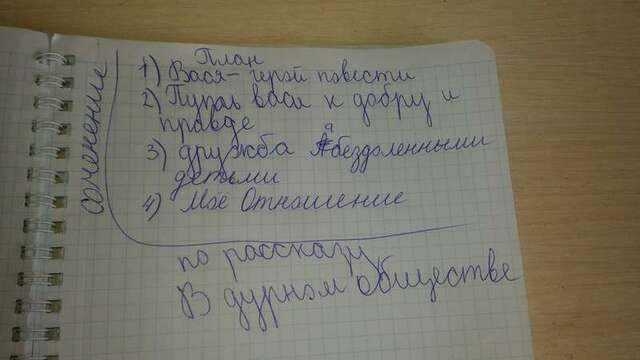 сочинение
План
1) Вася - герой повести
2) Путь Васи к добру и
правде
3) дружба с обездоленными
детьми
4) Мое Отношение
по рассказу
В дурном обществе